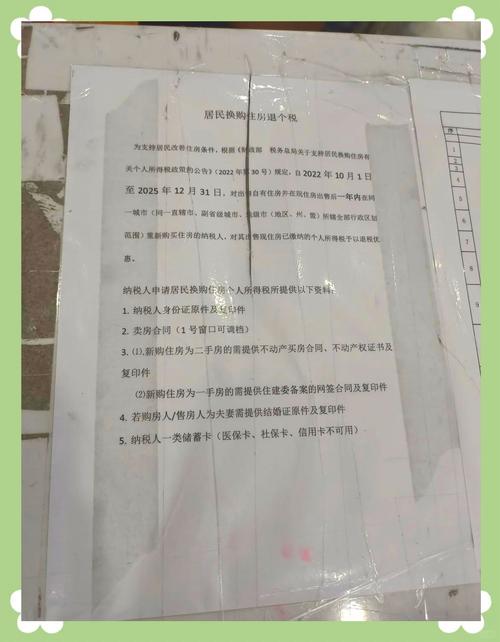 居民换购住房退个税
为支持居民改善住房条件，根据《财政部 税务总局关于支持居民换购住房有
关个人所得税政策的公告》（2022年第30号）规定，自2022年10月1日
至2025年12月31日，对出售自有住房并在现住房出售后一年内在同
一城市（同一直辖市、副省级城市、地级市（地区、州、盟）所辖全部行政区划
范围）重新购买住房的纳税人，对其出售现住房已缴纳的个人所得税予以退税优
惠。
纳税人申请居民换购住房个人所得税所提供以下资料：
1. 纳税人身份证原件及复印件
2. 卖房合同（1号窗口可调档）
3. ⑴、新购住房为二手房的需提供不动产买房合同、不动产权证书及
复印件
⑵新购住房为一手房的需提供住建委备案的网签合同及复印件
4. 若购房人/售房人为夫妻需提供结婚证原件及复印件
5. 纳税人一类储蓄卡（医保卡、社保卡、信用卡不可用）
序
1
2
3
4
5
6
7
8
9